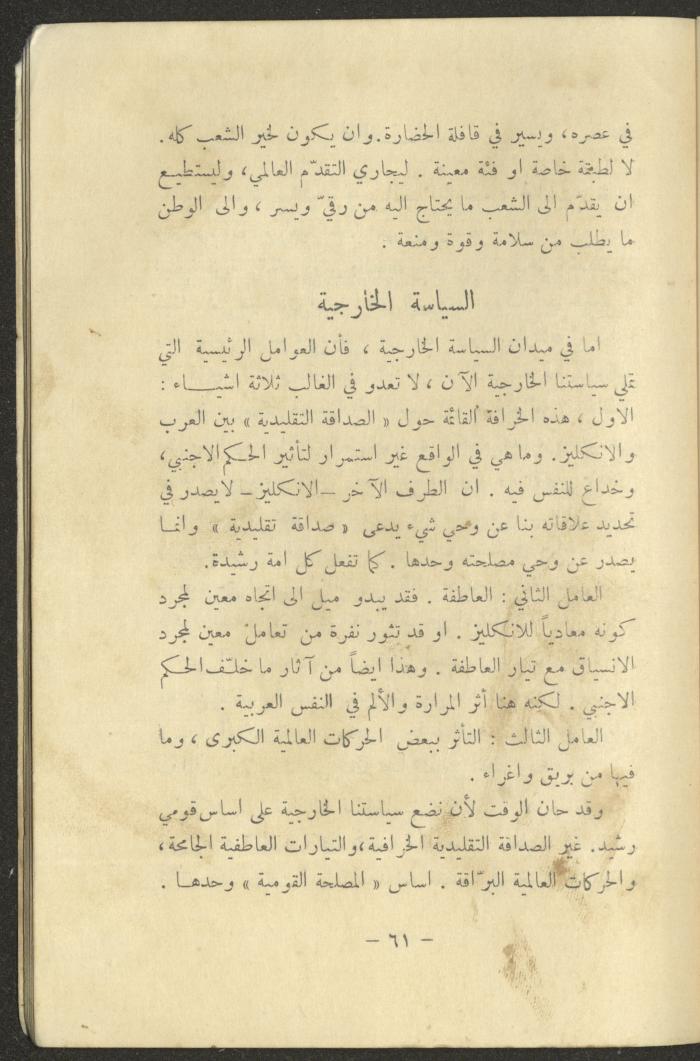 في عصره، ويسير في قافلة الحضارة. وان يكون لخير الشعب كله.
لا لطبقة خاصة او فئة معينة . ليجاري التقدّم العالمي، وليستطيع
ان يقدّم الى الشعب ما يحتاج اليه من رقيّ ويسر ، والى الوطن
ما يطلب من سلامة وقوة ومنعة .
السياسة الخارجية
اما في ميدان السياسة الخارجية ، فأن العوامل الرئيسية التي
تملي سياستنا الخارجية الآن ، لا تعدو في الغالب ثلاثة اشياء :
الاول ، هذه الخرافة القائمة حول « الصداقة التقليدية » بين العرب
والانكليز. وما هي في الواقع غير استمرار لتأثير الحكم الاجنبي،
وخداع للنفس فيه . ان الطرف الآخر – الانكليز – لا يصدر في
تحديد علاقاته بنا عن وحي شيء يدعى « صداقة تقليدية » وانما
يصدر عن وحي مصلحته وحدها . كما تفعل كل امة رشيدة.
العامل الثاني : العاطفة . فقد يبدو ميل الى اتجاه معين لمجرد
كونه معادياً للانكليز . او قد تثور نفرة من تعامل معين لمجرد
الانسياق مع تيار العاطفة . وهذا ايضاً من آثار ما خلّف الحكم
الاجنبي . لكنه هنا أثر المرارة والألم في النفس العربية .
العامل الثالث : التأثر ببعض الحركات العالمية الكبرى ، وما
فيها من بريق واغراء .
وقد حان الوقت لأن نضع سياستنا الخارجية على اساس قومي
رشيد. غير الصداقة التقليدية الخرافية، والتيارات العاطفية الجامحة،
والحركات العالمية البرّاقة . اساس « المصلحة القومية » وحدها .
– ٦١ –